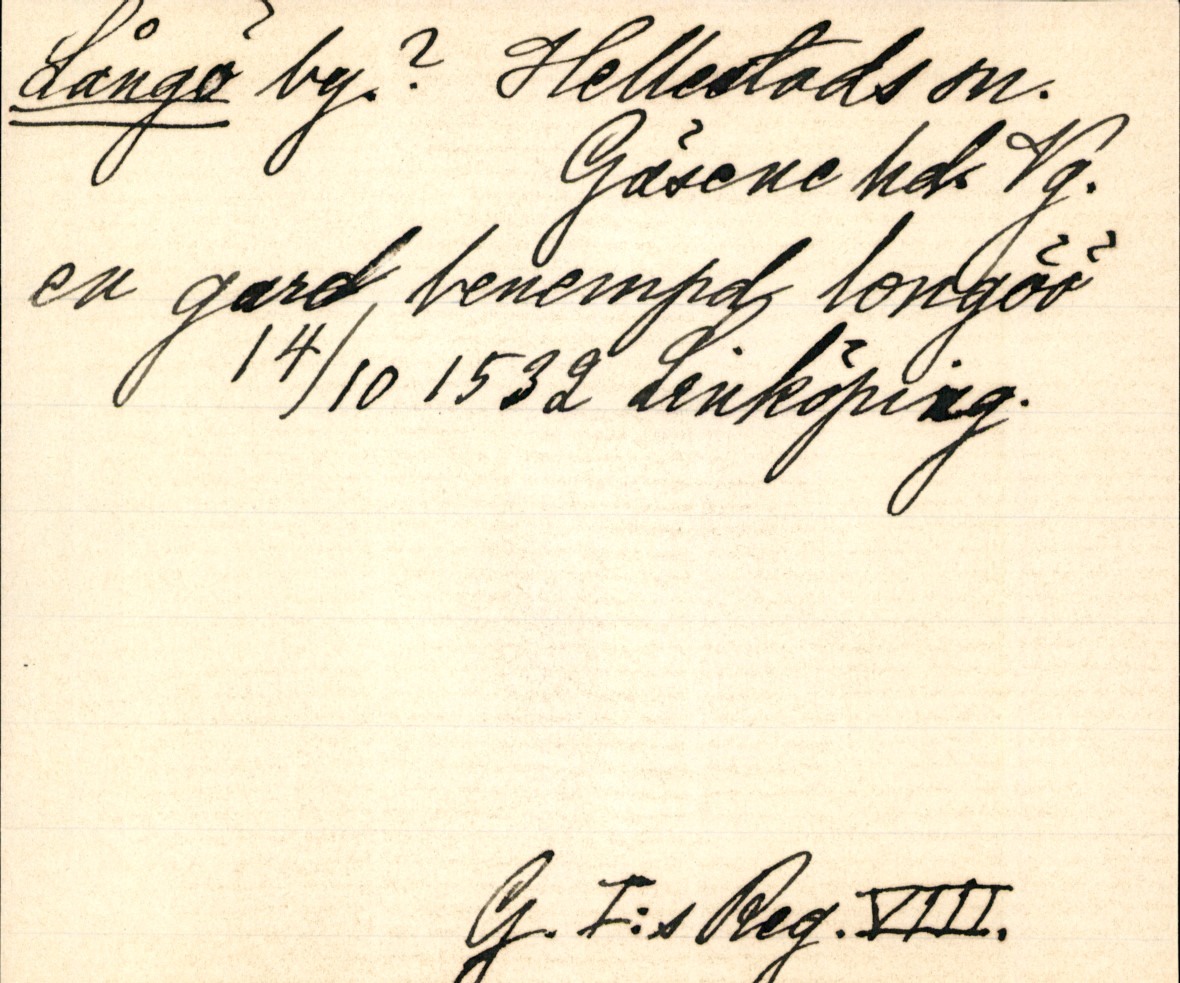 Långö by.? Hellestads sn.
Gäsene hd. Vg.
en gard benempd longöö
14/10 1532 Linköping.
G. I:s Reg. VIII.